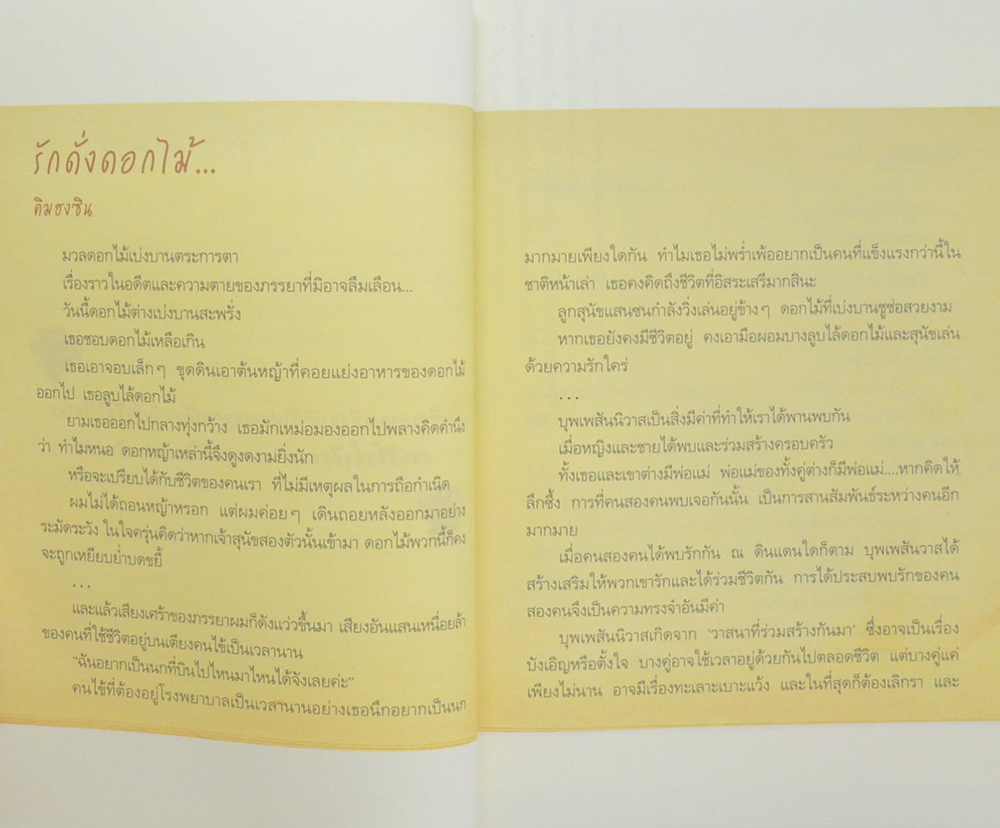 รักดั่งดอกไม้...
คิมฮงซิน
มวลดอกไม้เบ่งบานตระการตา
เรื่องราวในอดีตและความตายของภรรยาที่มิอาจลืมเลือน...
วันนี้ดอกไม้ต่างเบ่งบานสะพรั่ง
เธอชอบดอกไม้เหลือเกิน
เธอเอาจอบเล็กๆ ขุดดินเอาต้นหญ้าที่คอยแย่งอาหารของดอกไม้
ออกไป เธอลูบไล้ดอกไม้
ยามเธอออกไปกลางทุ่งกว้าง เธอมักเหม่อมองออกไปพลางคิดคำนึง
ว่า ทำไมหนอ ดอกหญ้าเหล่านี้จึงดูงดงามยิ่งนัก
หรือจะเปรียบได้กับชีวิตของคนเรา ที่ไม่มีเหตุผลในการถือกำเนิด
ผมไม่ได้ถอนหญ้าหรอก แต่ผมค่อยๆ เดินถอยหลังออกมาอย่าง
ระมัดระวัง ในใจครุ่นคิดว่าหากเจ้าสุนัขสองตัวนั้นเข้ามา ดอกไม้พวกนี้ก็คง
จะถูกเหยียบย่ำบดขยี้
...
และแล้วเสียงเศร้าของภรรยาผมก็ดังแว่วขึ้นมา เสียงอันแสนเหนื่อยล้า
ของคนที่ใช้ชีวิตอยู่บนเตียงคนไข้เป็นเวลานาน
“ฉันอยากเป็นนกที่บินไปไหนมาไหนได้จังเลยค่ะ”
คนไข้ที่ต้องอยู่โรงพยาบาลเป็นเวลานานอย่างเธอนึกอยากเป็นนก
มากมายเพียงใดกัน ทำไมเธอไม่พร่ำเพ้ออยากเป็นคนที่แข็งแรงกว่านี้ใน
ชาติหน้าเล่า เธอคงคิดถึงชีวิตที่อิสระเสรีมากสินะ
ลูกสุนัขแสนซนกำลังวิ่งเล่นอยู่ข้างๆ ดอกไม้ที่เบ่งบานชูช่อสวยงาม
หากเธอยังคงมีชีวิตอยู่ คงเอามือผอมบางลูบไล้ดอกไม้และสุนัขเล่น
ด้วยความรักใคร่
...
บุพเพสันนิวาสเป็นสิ่งมีค่าที่ทำให้เราได้พานพบกัน
เมื่อหญิงและชายได้พบและร่วมสร้างครอบครัว
ทั้งเธอและเขาต่างมีพ่อแม่ พ่อแม่ของทั้งคู่ต่างก็มีพ่อแม่....หากคิดให้
ลึกซึ้ง การที่คนสองคนพบเจอกันนั้น เป็นการสานสัมพันธ์ระหว่างคนอีก
มากมาย
เมื่อคนสองคนได้พบรักกัน ณ ดินแดนใดก็ตาม บุพเพสันวาสได้
สร้างเสริมให้พวกเขารักและได้ร่วมชีวิตกัน การได้ประสบพบรักของคน
สองคนจึงเป็นความทรงจำอันมีค่า
บุพเพสันนิวาสเกิดจาก ‘วาสนาที่ร่วมสร้างกันมา’ ซึ่งอาจเป็นเรื่อง
บังเอิญหรือตั้งใจ บางคู่อาจใช้เวลาอยู่ด้วยกันไปตลอดชีวิต แต่บางคู่แค่
เพียงไม่นาน อาจมีเรื่องทะเลาะเบาะแว้ง และในที่สุดก็ต้องเลิกรา และ